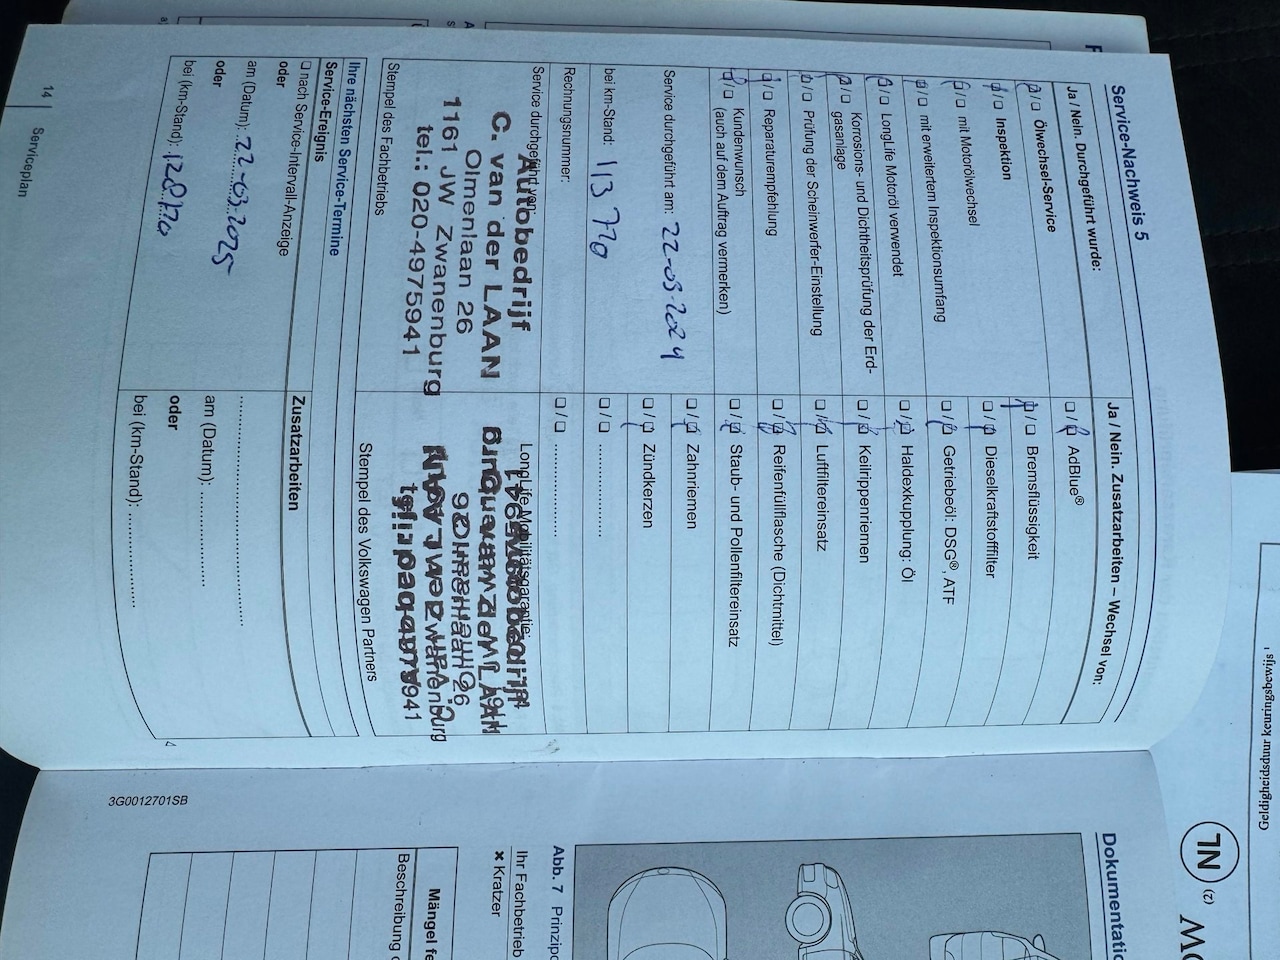 Service-Nachweis 5
Ja / Nein. Durchgeführt wurde:
☐/☐ Ölwechsel-Service
☐/☐ Inspektion
☐/☐ mit Motorölwechsel
☐/☐ mit erweitertem Inspektionsumfang
☐/☐ LongLife Motoröl verwendet
☐/☐ Korrosions- und Dichtheitsprüfung der Erd-
gasanlage
☐/☐ Prüfung der Scheinwerfer-Einstellung
☐/☐ Reparaturempfehlung
☐/☐ Kundenwunsch
(auch auf dem Auftrag vermerken)
Service durchgeführt am: 22-03-2024
bei km-Stand: 113 770
Rechnungsnummer:
Service durchgeführt von:
Autobedrijf
C. van der LAAN
Olmenlaan 26
1161 JW Zwanenburg
tel.: 020-4975941
Stempel des Fachbetriebs
Ja / Nein. Zusatzarbeiten – Wechsel von:
☐/☐ AdBlue®
☐/☐ Bremsflüssigkeit
☐/☐ Dieselkraftstofffilter
☐/☐ Getriebeöl: DSG® ATF
☐/☐ Haldexkupplung: Öl
☐/☐ Keilrippenriemen
☐/☐ Luftfiltereinsatz
☐/☐ Reifenfüllflasche (Dichtmittel)
☐/☐ Staub- und Pollenfiltereinsatz
☐/☐ Zahnriemen
☐/☐ Zündkerzen
☐/☐ ..................
☐/☐ ..................
LongLife Mobilitätsgarantie:
Stempel des Volkswagen Partners
Ihre nächsten Service-Termine
Service-Ereignis
☐ nach Service-Intervall-Anzeige
oder
am (Datum): 22-03-2025
oder
bei (km-Stand):
Zusatzarbeiten
am (Datum): ..................
oder
bei (km-Stand): ..................
14
Serviceplan
3G0012701SB
Dokumentatio
Abb. 7 Prinzipd
Ihr Fachbetrieb
× Kratzer
Mängel fe
Beschreibung
Geldigheidsduur keuringsbewijs
NL
(2)